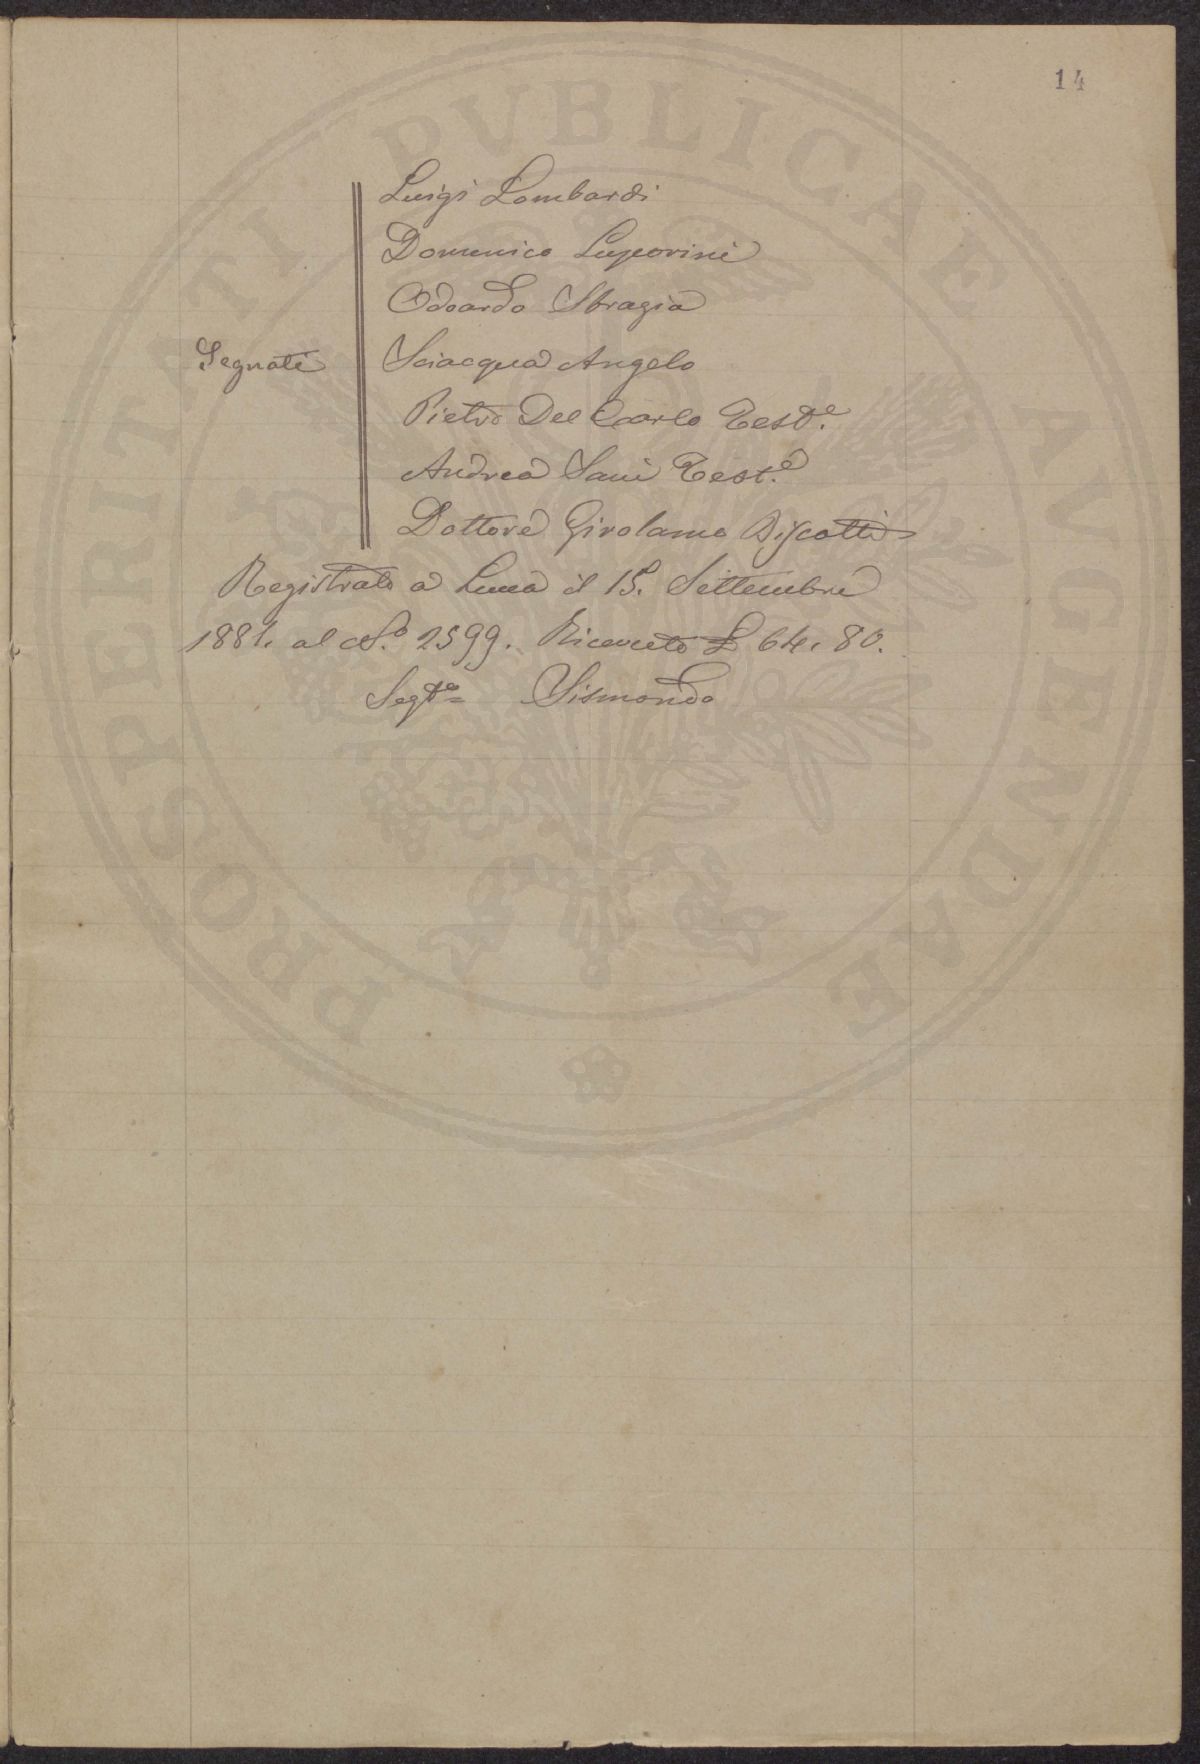 14
Luigi Lombardi
Domenico Luporini
Odoardo Sbragia
Segnati Sciacqua Angelo
Pietro Del Carlo Test.e
Andrea Sani Test.e
Dottore Girolamo Biscotti
Registrato a Lucca il 15. Settembre
1881. al N.o 2599. Ricevuto £ 64. 80.
Segt.o = Sismondo
PROSPERITATI PVBLICAE AVGENDAE